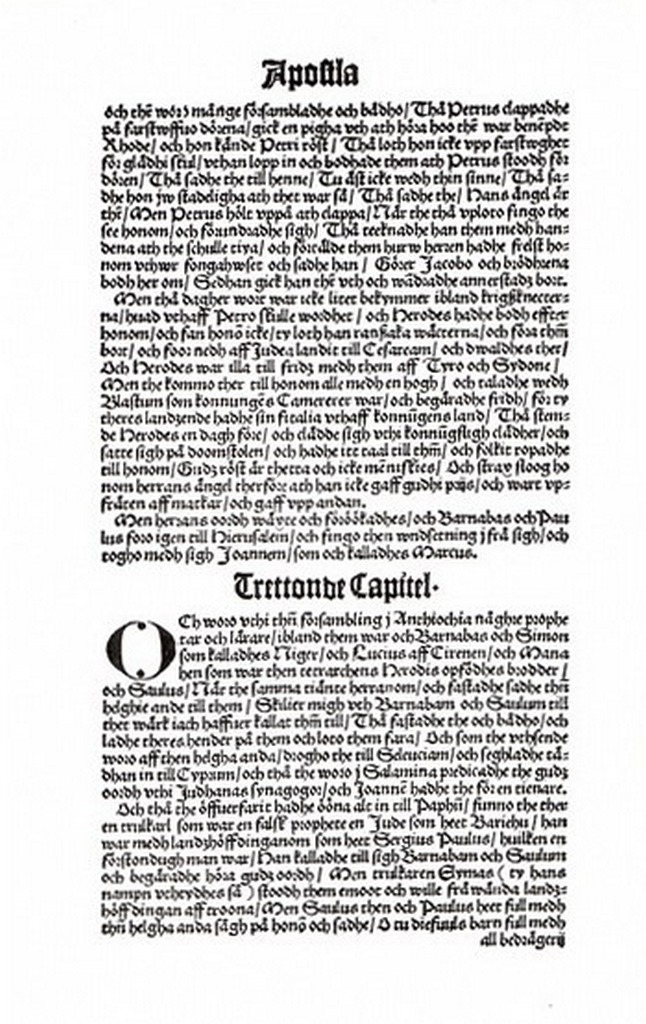 Apostla
och thē wore mānge försambladhe och bādho/ Thā Petrus clappadhe
pā farstwffuo dörena/ gick en pigha vth ath hōra hoo thē war benēpdt
Rhode/ och hon kānde Petri röst/ Thā loth hon icke vpp farstwghet
för glādhi skul/ vthan lopp in och bodhade them ath Petrus stoodh för
dören/ Thā sadhe the till henne/ Tu āst icke wedh thin sinne/ Thā sa-
dhe hon jw stadeligha ath thet war sā/ Thā sadhe the/ Hans āngel ār
thē/ Men Petrus hölt vppā ath clappa/ Nār the thā vploto fingo the
see honom/ och förundradhe sigh/ Thā teeknadhe han them medh han-
dena ath the schulle tiya/ och förtālde them hurw herren hadhe frelst ho-
nom vthwr fongahwset och sadhe han/ Görer Jacobo och brödhrena
bodh her om/ Sedhan gick han thē vth och wādradhe annerstadz bort.
Men thā dagher wort war icke litet bekymmer ibland krigsknecter-
na/ huad vthaff Petro skulle wordhet/ och Herodes hadhe bodh effter
honom/ och fan honō icke/ ty loth han ransaka wācterna/ och föra thm̄
bort/ och foor nedh aff Judea landit till Cesaream/ och dwaldhes ther/
Och Herodes war illa till fridz medh them aff Tyro och Sydone/
Men the kommo ther till honom alle medh en hogh/ och taladhe wedh
Blastum som konnungēs Camererer war/ och begāradhe fridh/ för ty
theres landzende hadhe sin fitalia vthaff konnūgens land/ Thā stem-
de Herodes en dagh före/ och clādde sigh vthi konnūgsligh clādher/ och
satte sigh pā doomstolen/ och hadhe itt taal till thm̄/ och folkit ropadhe
till honom/ Gudz röst ār thetta och icke mēniskies/ Och strax sloog ho
nom herrans āngel therföre ath han icke gaff gudhi prijs/ och wart vp-
frāten aff matkar/ och gaff vpp andan.
Men herrans oordh wāxte och förökadhes/ och Barnabas och Pau
lus foro igen till Hierusalem/ och fingo then vndsetning j frā sigh/ och
togho medh sigh Joannem/ som och kalladhes Marcus.
Trettonde Capitel.
OCh woro vthi thn̄ försambling j Anthiochia nāghre prophe
tar och lārare/ ibland them war och Barnabas och Simon
som kalladhes Niger/ och Lucius aff Cirenen/ och Mana
hen som war then tetrarchens Herodis opfödhes brodder/
och Saulus/ Nār the samma tiānte herranom/ och fastadhe sadhe thn̄
helghie ande till them/ Skilier migh vth Barnabam och Saulum till
thet wārk iach haffuer kallat thm̄ till/ Thā fastadhe the och bādho/ och
ladhe theres hender pā them och loto them fara/ Och som the vthsende
woro aff then helgha anda/ drogho the till Seleuciam/ och seghladhe tā-
dhan in till Cyprum/ och thā the woro j Salamina predicadhe the gudz
oordh vthi Judhanas synagogor/ och Joannē hadhe the för en tienare.
Och thā the öffuerfarit hadhe öōna alt in till Paphū/ funno the ther
en trulkarl som war en falsk prophete en Jude som heet Bariehu/ han
war medh landzhöffdinganom som heet Sergius Paulus/ huilken en
förstondugh man war/ Han kalladhe till sigh Barnabam och Saulum
och begāradhe höra gudz oordh/ Men trulkaren Eymas (ty hans
nampn vthtydhes sā) stoodh them emoot och wille frā wānda landz-
höffdingan aff troona/ Men Saulus then och Paulus heet full medh
thn̄ helgha anda sāgh pā honō och sadhe/ O tu dieffuuls barn full medh
all bedrāgerij